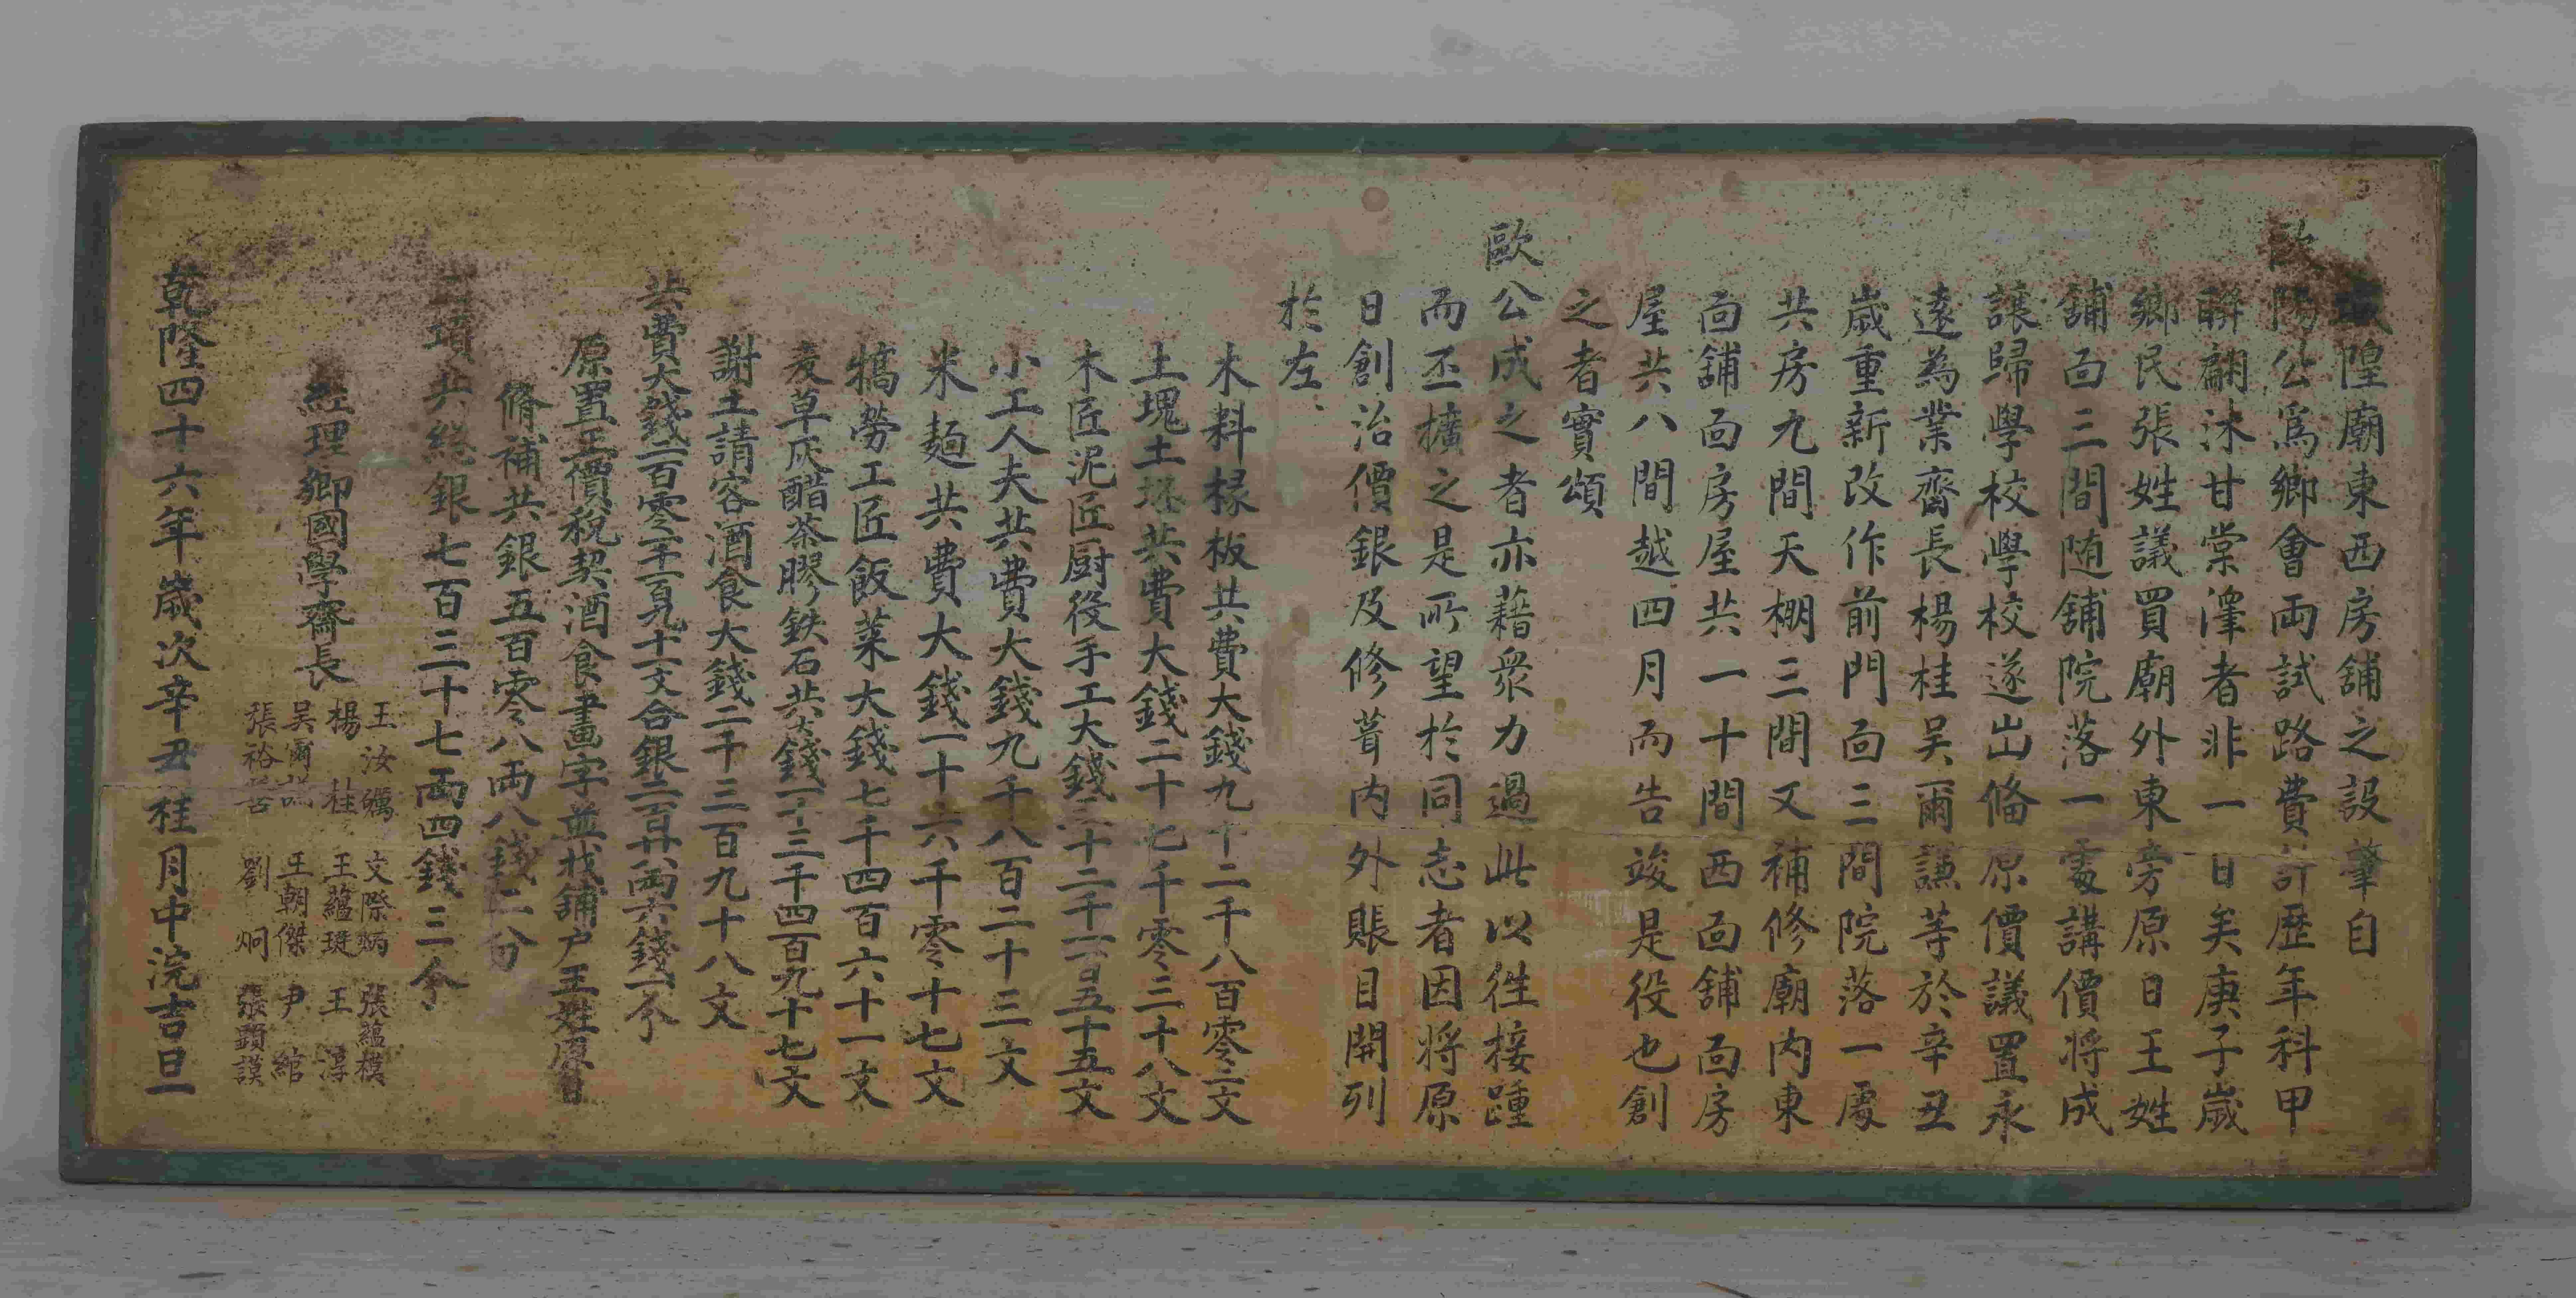 城隍廟東西房舖之設肇自
歐陽公爲鄉會両試路費計歷年科甲
聯翩沐甘棠澤者非一日矣庚子歲
鄉民張姓議買廟外東旁原日王姓
舖靣三間随舖院落一處講價将成
讓歸學校學校遂出俻原價議置永
遠為業齋長楊桂吴爾謙等於辛丑
歲重新改作前門靣三間院落一處
共房九間天棚三間又補修廟内東
靣舖靣房屋共一十間西靣舖靣房
屋共八間越四月而告竣是役也創
之者實頌
歐公成之者亦藉衆力過此以徃接踵
而丕擴之是所望於同志者因将原
日創治價銀及修葺内外賬目開列
於左
木料椽板共費大錢九十二千八百零二文
土塊土坯共費大錢二十七千零三十八文
木匠泥匠厨役手工大錢三十二千一百五十五文
小工人夫共費大錢九千八百二十三文
米麺共費大錢一十六千零十七文
犒勞工匠飯菜大錢七千四百六十一文
麦草灰醋茶膠鉄石共大錢一十三千四百九十七文
謝土請容酒食大錢二千三百九十八文
共費大錢二百零一千一百九十一文合銀二百廿八両六錢一分
原置正價稅契酒食畫字並找舖户王姓原日
脩補共銀五百零八両八錢二分
二項共總銀七百三十七両四錢三分
經理鄉國學齋長
王汝礪 文際炳 張蘊模
楊桂 王蘊珽 王淳
吴爾謙 王朝傑 尹綰
張裕 劉炯 張顕謨
乾隆四十六年歲次辛丑桂月中浣吉旦